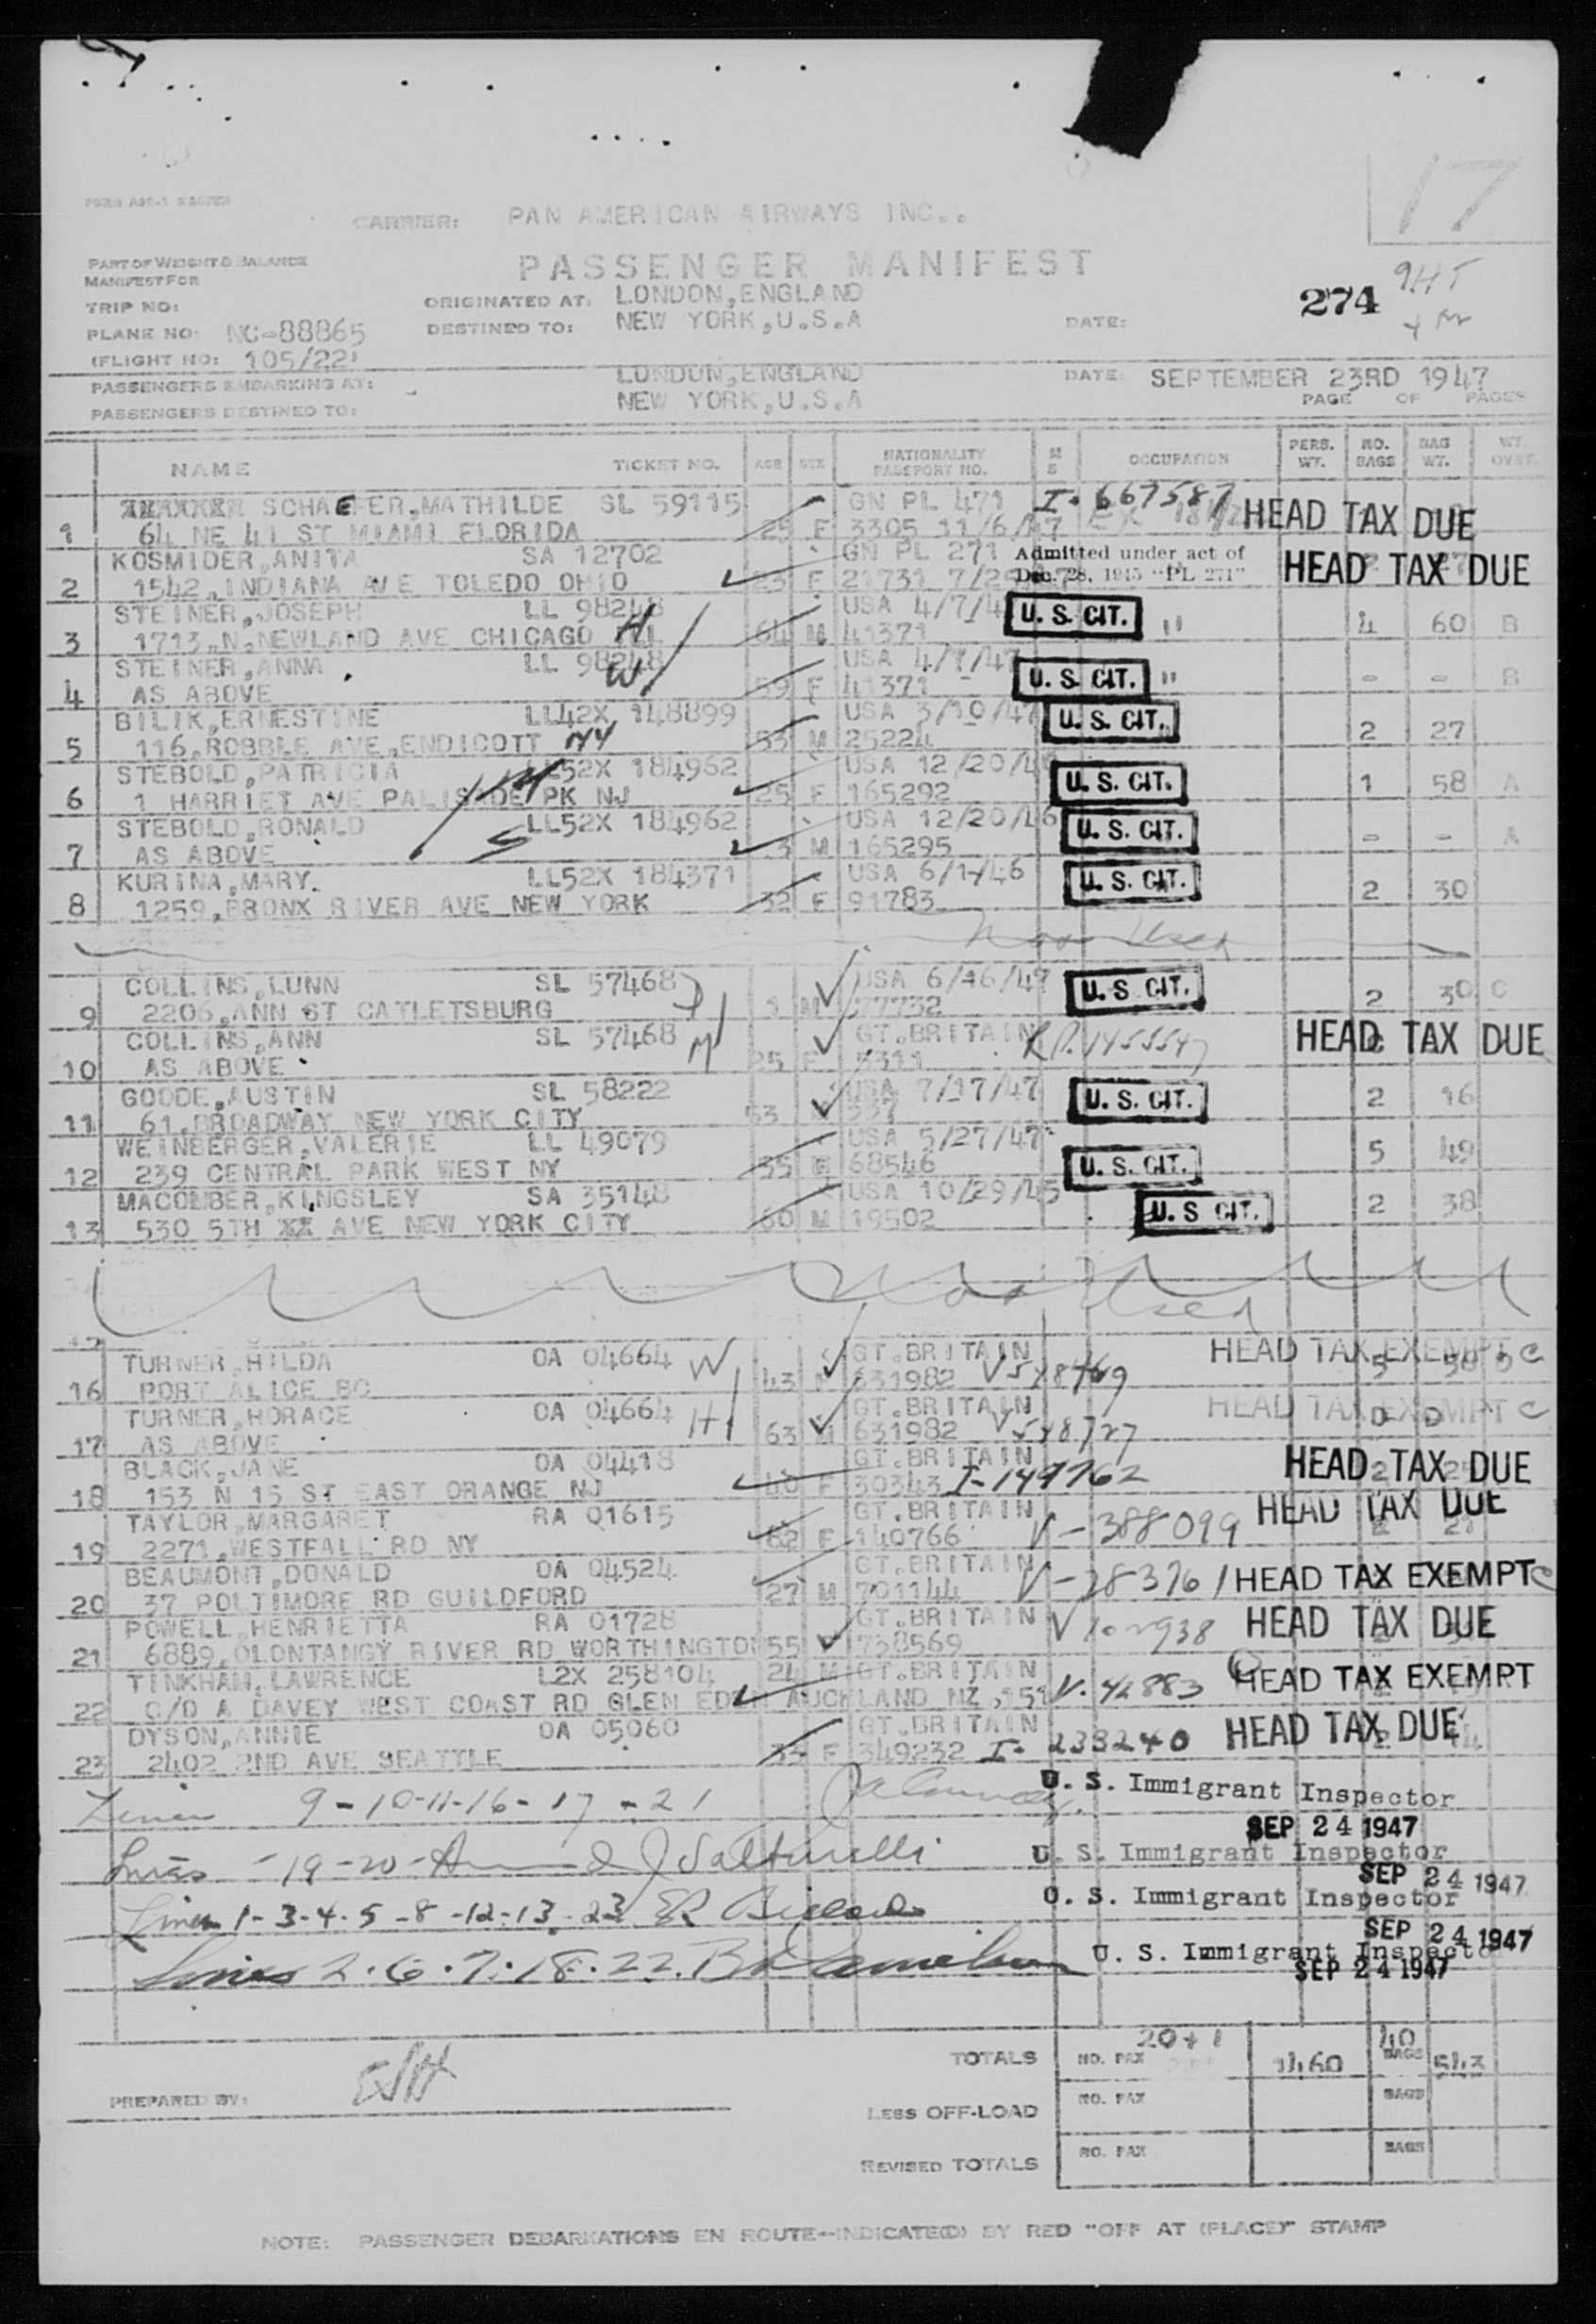 17
FORM
CARRIER: PAN AMERICAN AIRWAYS INC..
PART OF WEIGHT & BALANCE
MANIFEST FOR
PASSENGER MANIFEST
9HT
274
TRIP NO:
ORIGINATED AT: LONDON,ENGLAND
PLANE NO: NC-88865
DESTINED TO: NEW YORK,U.S.A
DATE:
(FLIGHT NO: 105/22)
PASSENGERS EMBARKING AT: LONDON,ENGLAND
DATE: SEPTEMBER 23RD 1947
PASSENGERS DESTINED TO: NEW YORK,U.S.A
PAGE OF PAGES
NAME TICKET NO. AGE SEX NATIONALITY PASSPORT NO. M S OCCUPATION PERS. WT. NO. BAGS BAG WT. WT. OVWT.
SCHAEFER,MATHILDE SL 59115 GN PL 471 I-667587 HEAD TAX DUE
1 64 NE 41 ST MIAMI FLORIDA 25 F 3305 11/6/47
KOSMIDER,ANITA SA 12702 GN PL 271 Admitted under act of HEAD TAX DUE
2 1542,INDIANA AVE TOLEDO OHIO 23 F 21731 Dec. 28, 1945 "PL 271"
STEINER,JOSEPH LL 98248 USA 4/7/47 U. S. CIT. "
3 1713,N,NEWLAND AVE CHICAGO ILL H 64 M 41371 4 60 B
STEINER,ANNA LL 98248 W USA 4/7/47 U. S. CIT. "
4 AS ABOVE 59 F 41371 - - B
BILIK,ERNESTINE LL42X 148899 USA 3/10/47 U. S. CIT.
5 116,ROBBLE AVE,ENDICOTT NY 53 M 25224 2 27
STEBOLD,PATRICIA LL52X 184962 M USA 12/20/46 U. S. CIT.
6 1 HARRIET AVE PALISADE PK NJ 25 F 165292 1 58 A
STEBOLD,RONALD LL52X 184962 USA 12/20/46 U. S. CIT.
7 AS ABOVE S 3 M 165295 - - A
KURINA,MARY. LL52X 184371 USA 6/14/46 U. S. CIT.
8 1259,BRONX RIVER AVE NEW YORK 32 F 91783 2 30
Non Used
COLLINS,LUNN SL 57468 USA 6/16/47 U. S. CIT.
9 2206,ANN ST CATLETSBURG 1 M 77732 2 30 C
COLLINS,ANN SL 57468 M GT.BRITAIN RP.1455547 HEAD TAX DUE
10 AS ABOVE 25 F 5311
GOODE,AUSTIN SL 58222 USA 7/17/47 U. S. CIT.
11 61,BROADWAY NEW YORK CITY 53 337 2 16
WEINBERGER,VALERIE LL 49079 USA 5/27/47 U. S. CIT.
12 239 CENTRAL PARK WEST NY 35 68546 5 49
MACOMBER,KINGSLEY SA 35148 USA 10/29/45 U. S. CIT.
13 530 5TH XX AVE NEW YORK CITY 60 M 19502 2 38
Non Used
TURNER,HILDA OA 04664 W GT.BRITAIN HEAD TAX EXEMPT C
16 PORT ALICE BC 43 631982 V548469
TURNER,HORACE OA 04664 H GT.BRITAIN HEAD TAX EXEMPT C
17 AS ABOVE 63 M 631982 V548727
BLACK,JANE OA 04418 GT.BRITAIN HEAD TAX DUE
18 153 N 15 ST EAST ORANGE NJ 40 F 30343 I-149762
TAYLOR,MARGARET RA 01615 GT.BRITAIN HEAD TAX DUE
19 2271,WESTFALL RD NY 62 F 140766 V-388099
BEAUMONT,DONALD OA 04524 GT.BRITAIN HEAD TAX EXEMPT C
20 37 POLTIMORE RD GUILDFORD 27 M 701144 V-283761
POWELL,HENRIETTA RA 01728 GT.BRITAIN HEAD TAX DUE
21 6889,OLONTANGY RIVER RD WORTHINGTON 55 738569 V102938
TINKHAM,LAWRENCE L2X 258104 24 M GT.BRITAIN HEAD TAX EXEMPT
22 C/O A DAVEY WEST COAST RD GLEN EDEN AUCKLAND NZ,151 V.42883
DYSON,ANNIE OA 05060 GT.BRITAIN HEAD TAX DUE
23 2402 2ND AVE SEATTLE 33 F 349232 I-233240
Lines 9-10-11-16-17-21 U. S. Immigrant Inspector
SEP 24 1947
Lines -19-20- U. S. Immigrant Inspector
SEP 24 1947
Lines 1-3-4-5-8-12-13-23 U. S. Immigrant Inspector
SEP 24 1947
Lines 2.6.7.18.22. U. S. Immigrant Inspector
SEP 24 1947
TOTALS NO. PAX 20+1 1460 40 BAGS 543
PREPARED BY:
LESS OFF-LOAD NO. PAX BAGS
REVISED TOTALS NO. PAX BAGS
NOTE: PASSENGER DEBARKATIONS EN ROUTE-INDICATE(D) BY RED "OFF AT (PLACE)" STAMP